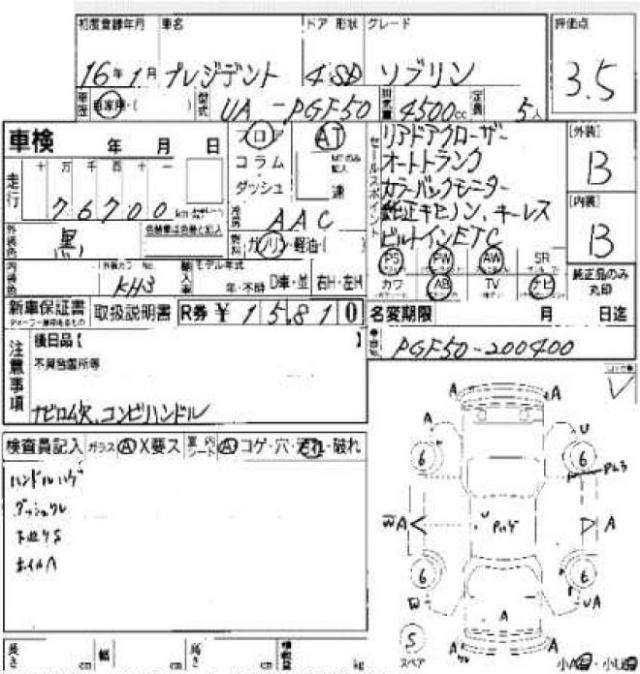 初度登録年月 車名 ドア 形状 グレード 評価点
16年1月 プレジデント 4 SD ソブリン 3.5
車歴 自家用・( ) 型式 UA-PGF50 排気量 4500cc 定員 5人
車検 年 月 日 フロア AT
コラム
ダッシュ 速
走行 十 万 千 百 十 一
76700 km
冷房 AAC
外装色 黒 燃料 ガソリン・軽油・( )
KH3 輸入車 モデル年式 年・不明 D車・並 右H・左H
セールスポイント
リアドアクローザー
オートトランク
カラーバックモニター
純正キセノン、キーレス
ビルトインETC
[外装] B
[内装] B
PS PW AW SR
カワ AB TV ナビ
純正品のみ丸印
新車保証書 取扱説明書 R券 ¥ 15810 名変期限 月 日迄
PGF50-200400
注意事項 後日品【 】
不具合箇所等
ナビロム欠、コンビハンドル
検査員記入 ガラス A X要ス 室内シート A コゲ・穴・汚れ・破れ
ハンドルハゲ
ダッシュワレ
下廻りS
ホイルA
A A
A U
6 6
W A U A
6 6
W UA
A
S
スペア A
長さ cm 幅 cm 高さ cm 積載量 kg